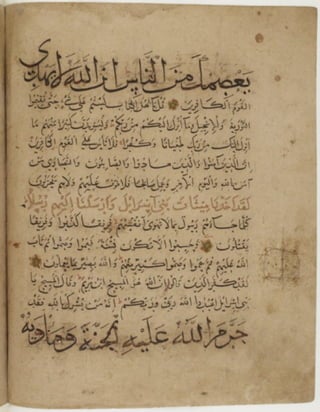 يعصمك من الناس ان الله لا يهدي
القوم الكافرين قل يا اهل الكتاب لستم على شيء حتى تقيموا
التورية والانجيل وما انزل اليكم من ربكم وليزيدن كثيرا منهم ما
انزل اليك من ربك طغيانا وكفرا فلا تاس على القوم الكافرين
ان الذين آمنوا والذين هادوا والصابئون والنصارى من
آمن بالله واليوم الآخر وعمل صالحا فلا خوف عليهم ولا هم يحزنون
لقد اخذنا ميثاق بني اسرائيل وارسلنا اليهم رسلا
كلما جاءهم رسول بما لا تهوى انفسهم فريقا كذبوا وفريقا
يقتلون وحسبوا الا تكون فتنة فعموا وصموا ثم تاب
الله عليهم ثم عموا وصموا كثير منهم والله بصير بما يعملون
لقد كفر الذين قالوا ان الله هو المسيح ابن مريم وقال المسيح يا
بني اسرائيل اعبدوا الله ربي وربكم انه من يشرك بالله فقد
حرم الله عليه الجنة ومأويه